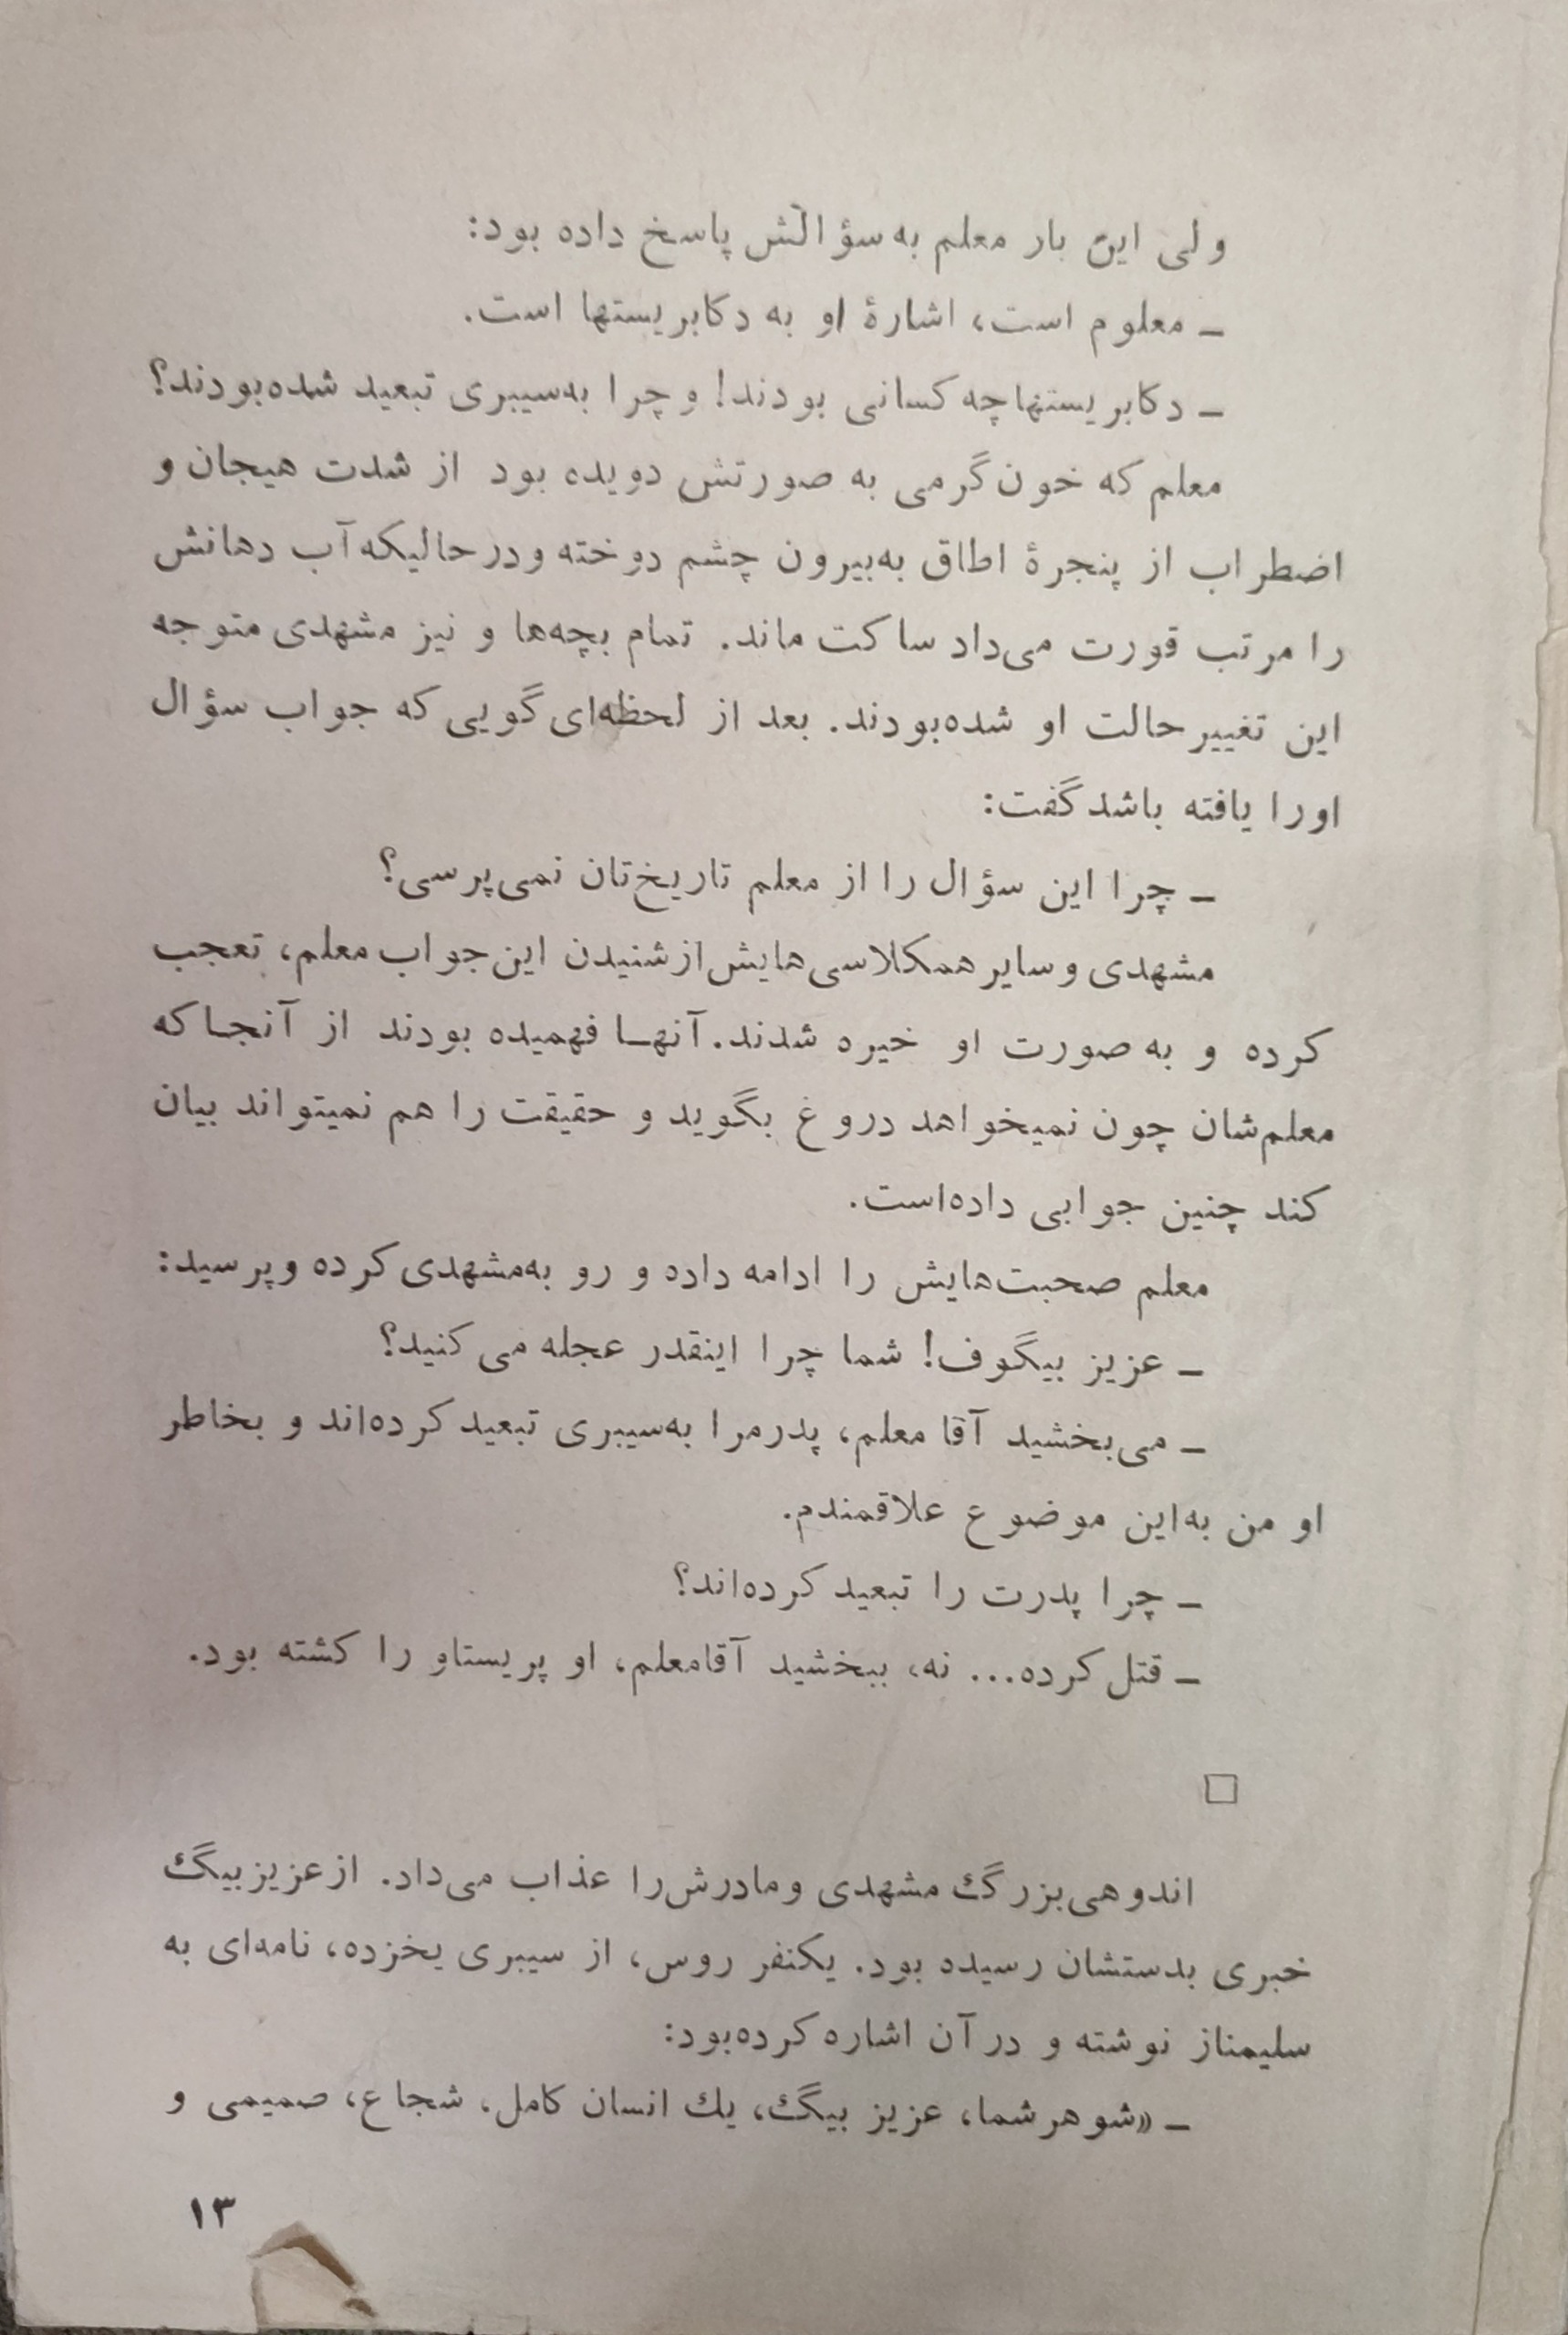 ولی این بار معلم به سؤالش پاسخ داده بود:
ـ معلوم است، اشارهٔ او به دکابریستها است.
ـ دکابریستها چه کسانی بودند! و چرا به‌سیبری تبعید شده‌بودند؟
معلم که خون گرمی به صورتش دویده بود از شدت هیجان و
اضطراب از پنجرهٔ اطاق به‌بیرون چشم دوخته و درحالیکه آب دهانش
را مرتب قورت می‌داد ساکت ماند. تمام بچه‌ها و نیز مشهدی متوجه
این تغییر حالت او شده‌بودند. بعد از لحظه‌ای گویی که جواب سؤال
اورا یافته باشد گفت:
ـ چرا این سؤال را از معلم تاریخ‌تان نمی‌پرسی؟
مشهدی و سایر همکلاسی‌هایش از شنیدن این جواب معلم، تعجب
کرده و به صورت او خیره شدند. آنهـا فهمیده بودند از آنجـا که
معلم‌شان چون نمیخواهد دروغ بگوید و حقیقت را هم نمیتواند بیان
کند چنین جوابی داده‌است.
معلم صحبت‌هایش را ادامه داده و رو به‌مشهدی کرده و پرسید:
ـ عزیز بیگوف! شما چرا اینقدر عجله می‌کنید؟
ـ می‌بخشید آقا معلم، پدرمرا به‌سیبری تبعید کرده‌اند و بخاطر
او من به‌این موضوع علاقمندم.
ـ چرا پدرت را تبعید کرده‌اند؟
ـ قتل کرده... نه، ببخشید آقامعلم، او پریستاو را کشته بود.
□
اندوهی‌بزرگ مشهدی و مادرش‌را عذاب می‌داد. از عزیز بیگ
خبری بدستشان رسیده بود. یکنفر روس، از سیبری یخزده، نامه‌ای به
سلیمناز نوشته و در آن اشاره کرده‌بود:
ـ «شوهر شما، عزیز بیگ، یك انسان کامل، شجاع، صمیمی و
۱۳